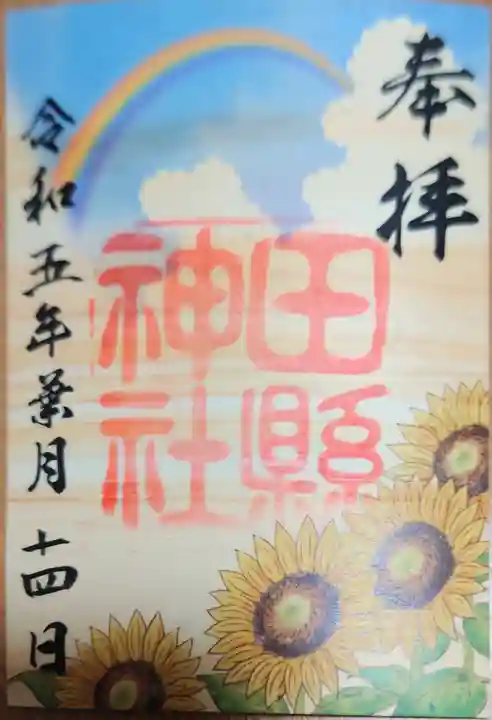 奉拝
田縣
神社
令和五年葉月十四日